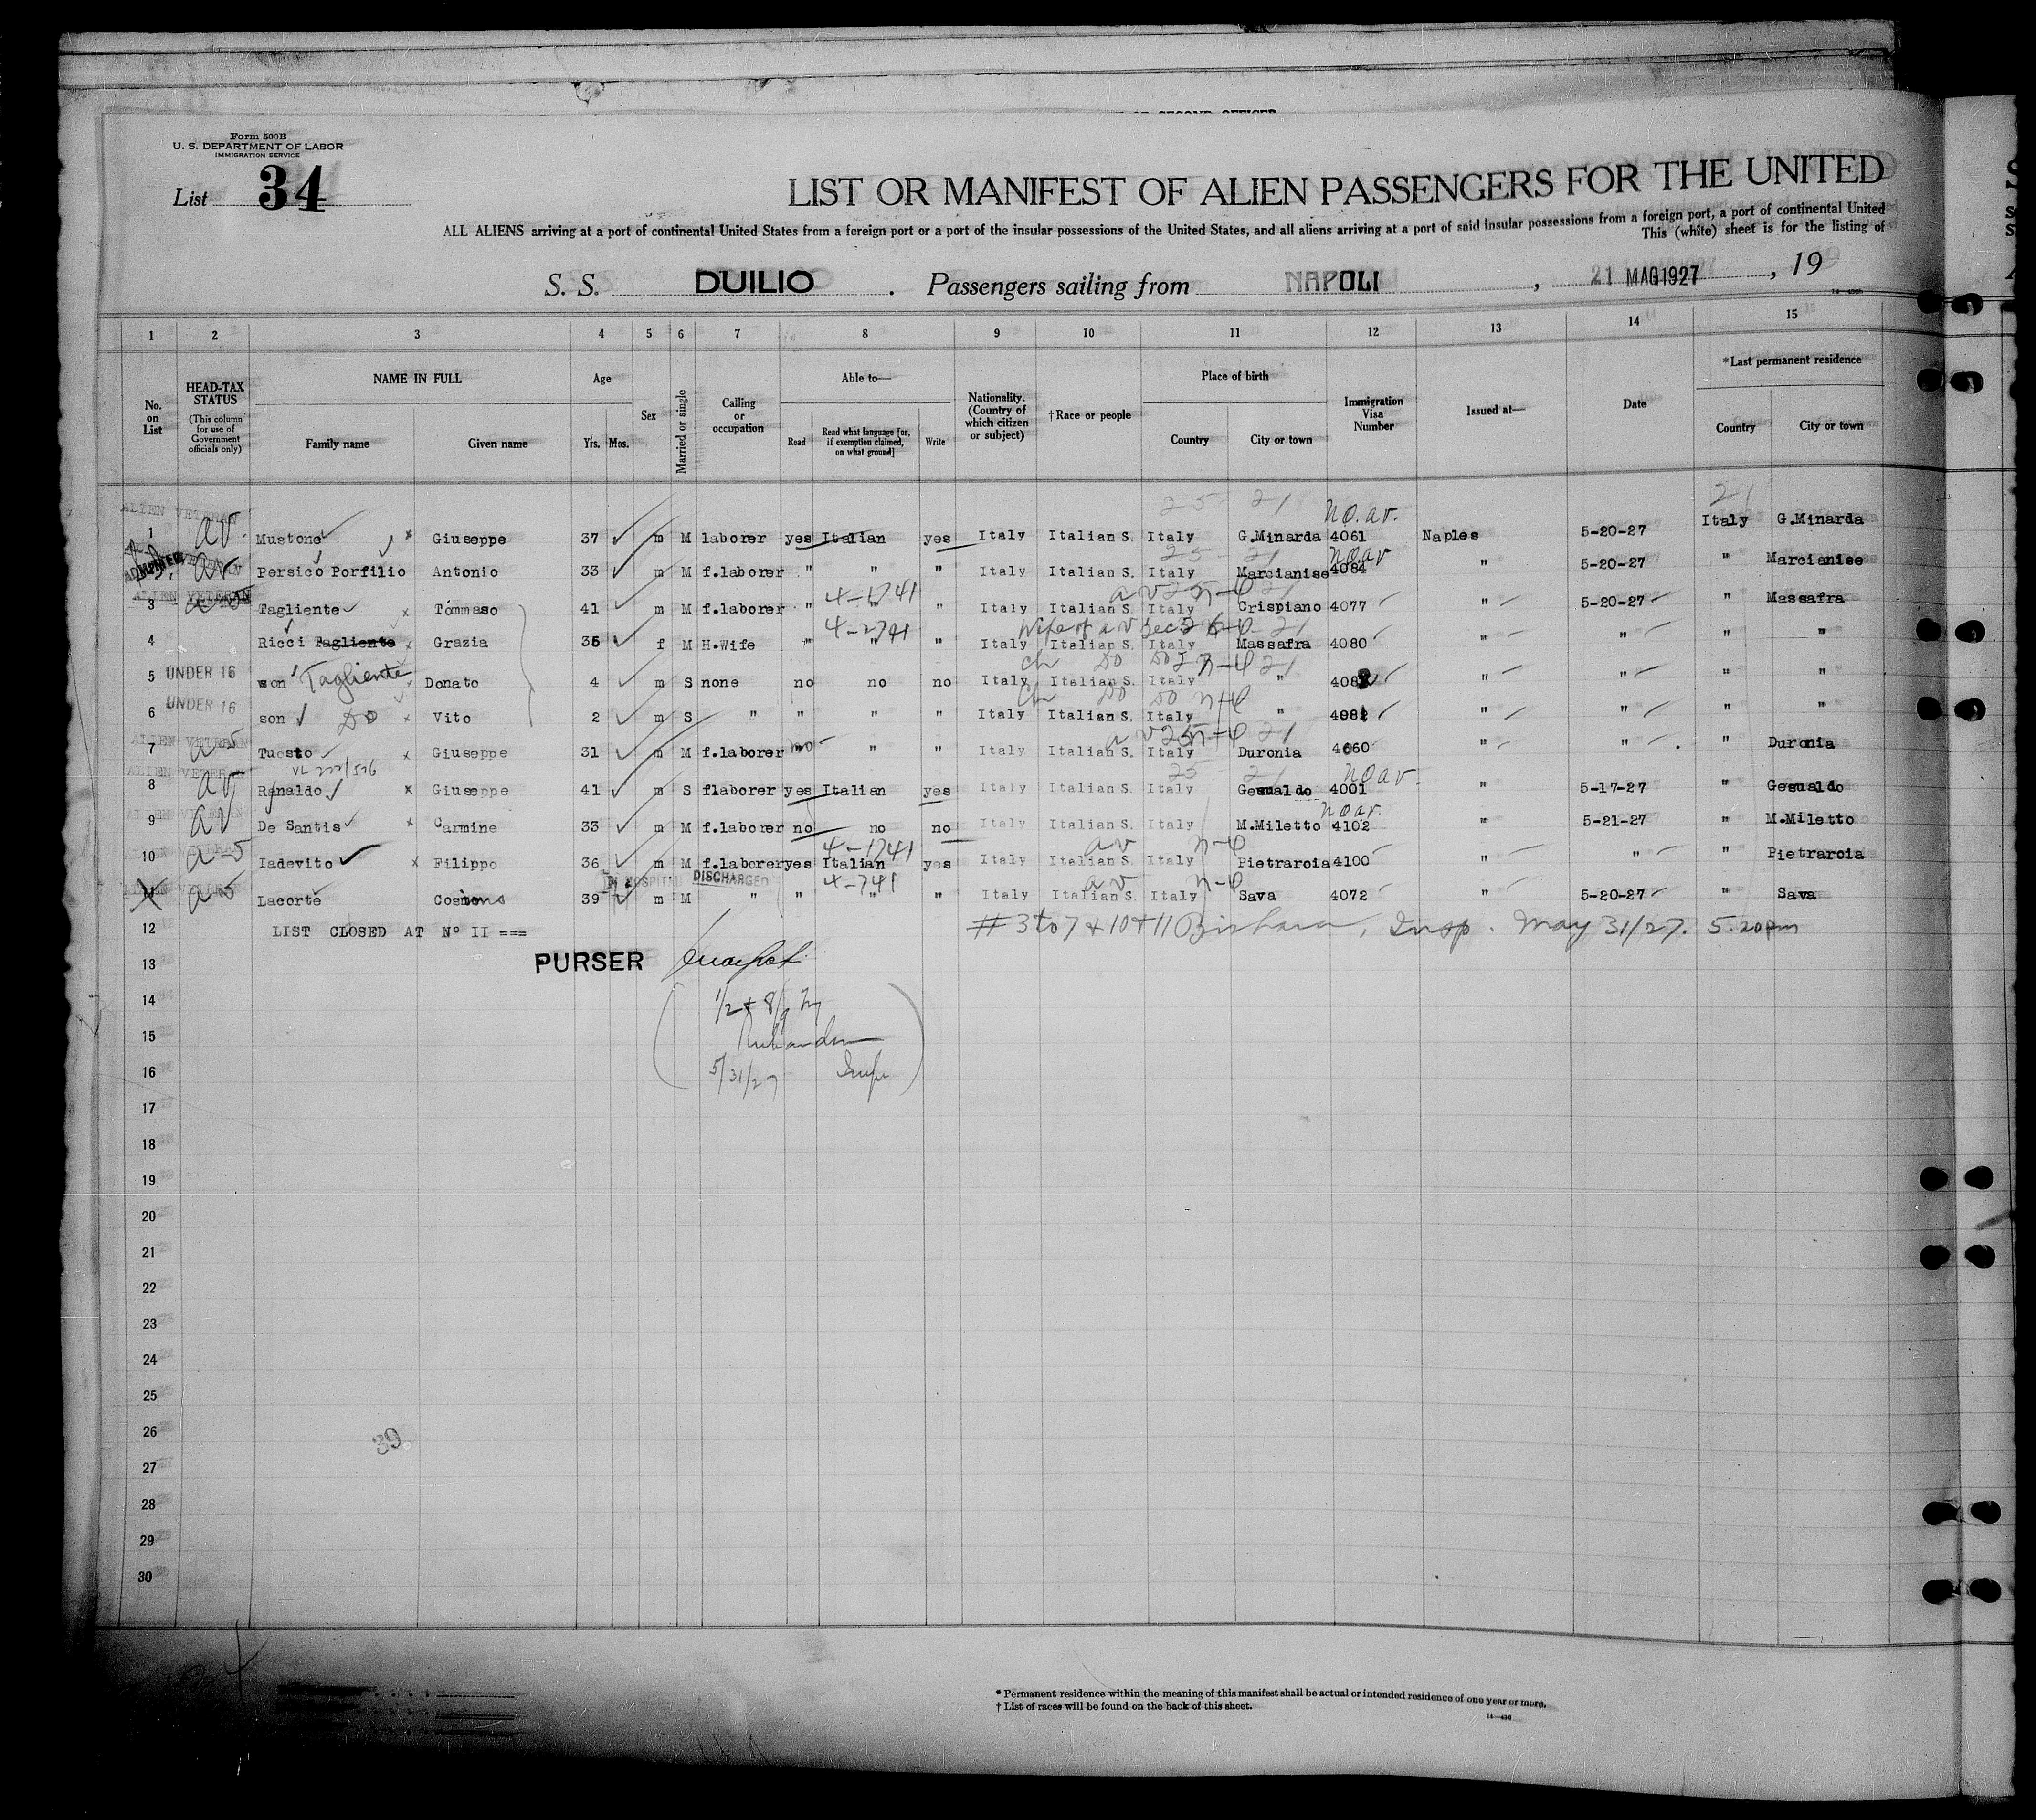 Form 500B
U. S. DEPARTMENT OF LABOR
IMMIGRATION SERVICE
List 34
LIST OR MANIFEST OF ALIEN PASSENGERS FOR THE UNITED
ALL ALIENS arriving at a port of continental United States from a foreign port or a port of the insular possessions of the United States, and all aliens arriving at a port of said insular possessions from a foreign port, a port of continental United
This (white) sheet is for the listing of
S. S. DUILIO . Passengers sailing from NAPOLI , 21 MAG 1927 , 19
1 2 3 4 5 6 7 8 9 10 11 12 13 14 15
No. on List
HEAD-TAX STATUS
(This column for use of Government officials only)
NAME IN FULL
Family name Given name
Age
Yrs. Mos.
Sex
Married or single
Calling or occupation
Able to—
Read
Read what language [or, if exemption claimed, on what ground]
Write
Nationality. (Country of which citizen or subject)
†Race or people
Place of birth
Country City or town
Immigration Visa Number
Issued at—
Date
*Last permanent residence
Country City or town
ALIEN VETERAN 25 21 no. av. 21
1 av. Mustone Giuseppe 37 m M laborer yes Italian yes Italy Italian S. Italy G.Minarda 4061 Naples 5-20-27 Italy G.Minarda
ADMITTED 25 21 no av
av Persico Porfilio Antonio 33 m M f.laborer " " " Italy Italian S. Italy Marcianise 4084 " 5-20-27 " Marcianise
ALIEN VETERAN 4-1741 av 25 n-φ 21
3 av Tagliente Tommaso 41 m M f.laborer " " " Italy Italian S. Italy Crispiano 4077 " 5-20-27 " Massafra
4-2741 Wife of av 21
4 Ricci Tagliente Grazia 35 f M H.Wife " " " Italy Italian S. Italy Massafra 4080 " " " "
UNDER 16 ch Do Do n-φ 21
5 son Tagliente Donato 4 m S none no no no Italy Italian S. Italy " 4082 " " " "
UNDER 16 Ch Do Do n-φ
6 son Do Vito 2 m S " " " " Italy Italian S. Italy " 4081 " " " "
ALIEN VETERAN av 25 n-φ 21
7 av Tuosto Giuseppe 31 m M f.laborer no " " Italy Italian S. Italy Duronia 4060 " " " Duronia
ALIEN VETERAN 25 21 no av.
8 av Ranaldo Giuseppe 41 m S flaborer yes Italian yes Italy Italian S. Italy Gesualdo 4001 " 5-17-27 " Gesualdo
ALIEN VETERAN no av.
9 av De Santis Carmine 33 m M f.laborer no no no Italy Italian S. Italy M.Miletto 4102 " 5-21-27 " M.Miletto
ALIEN VETERAN 4-1741 av n-φ
10 av Iadevito Filippo 36 m M f.laborer yes Italian yes Italy Italian S. Italy Pietraroia 4100 " " " Pietraroia
ALIEN VETERAN IN HOSPITAL DISCHARGED 4-741 av n-φ
11 av Lacorte Cosimo 39 m M " " " " Italy Italian S. Italy Sava 4072 " 5-20-27 " Sava
12 LIST CLOSED AT N° II === # 3 to 7 & 10 + 11 Bishara, Insp. May 31/27. 5.20 pm
13 PURSER
14 1/2 + 8/9 by
15 Richardson
16 5/31/27 Insp
17
18
19
20
21
22
23
24
25
26 39
27
28
29
30
* Permanent residence within the meaning of this manifest shall be actual or intended residence of one year or more.
† List of races will be found on the back of this sheet.